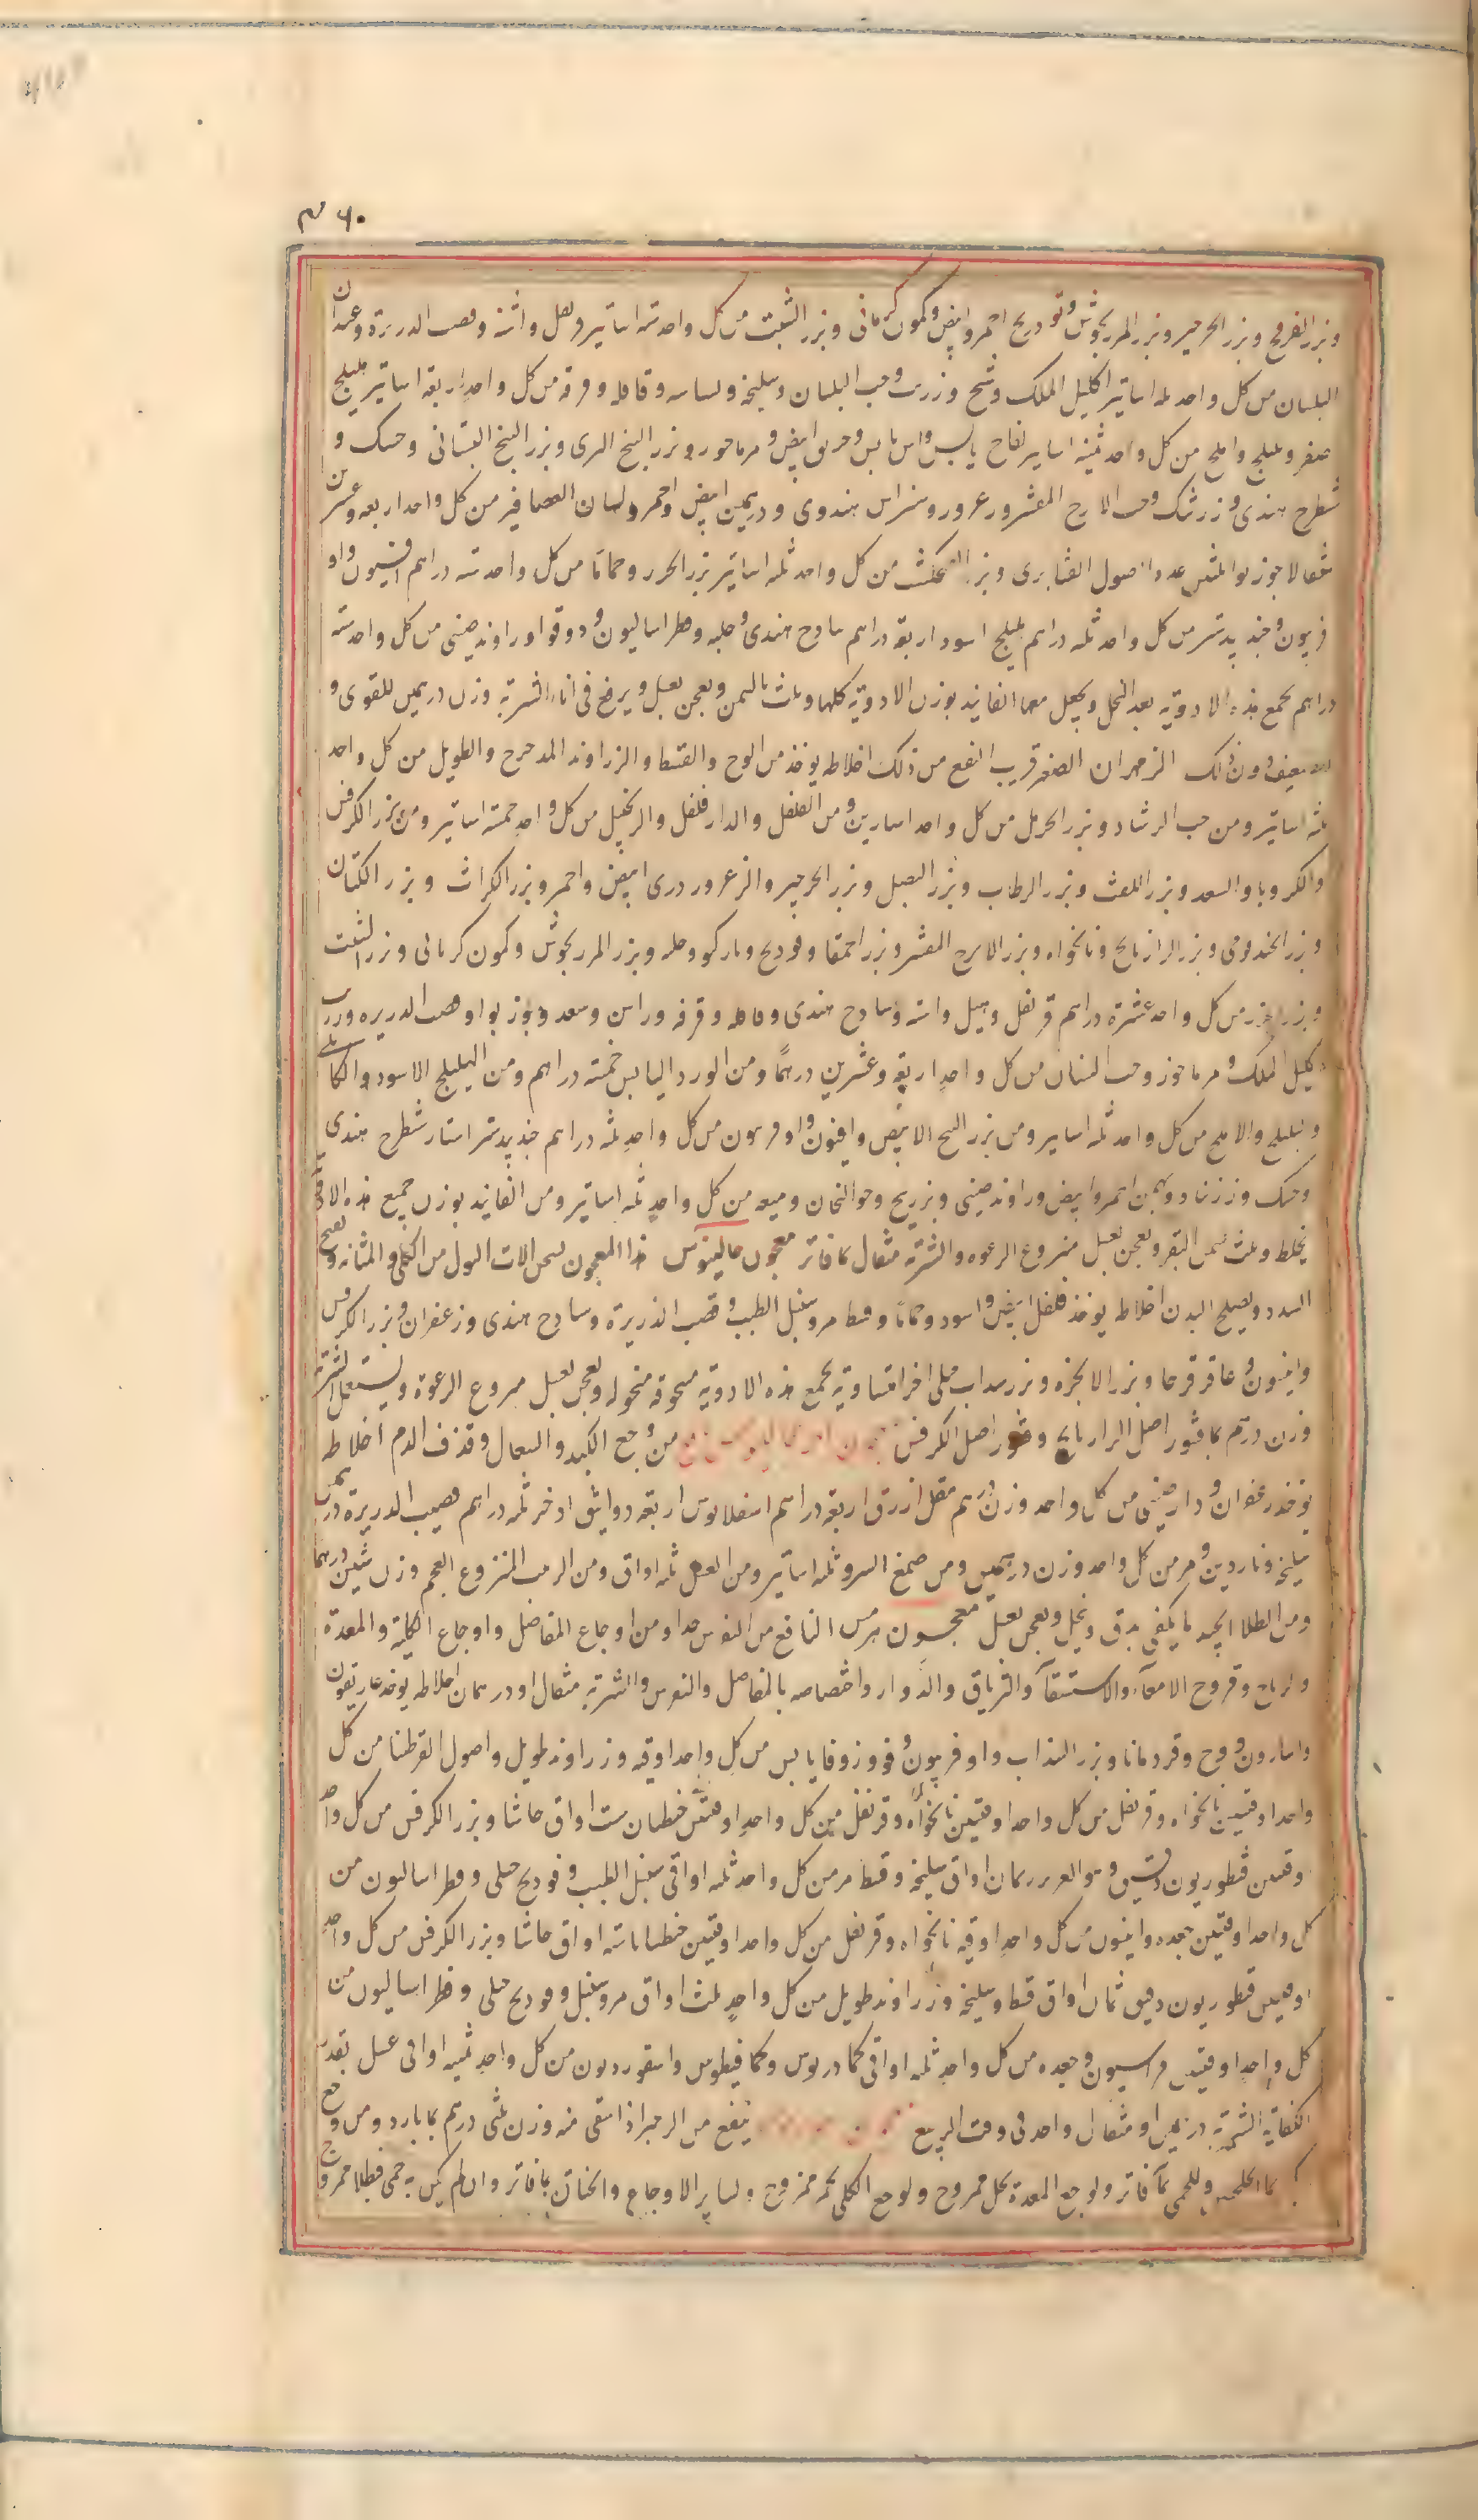 ٤٦٠
وبزر الفرفخ وبزر الجرجير وبزر المرزنجوش وتودريج احمر وابيض وكمون كرمانى وبزر الشبت من كل واحد ستة اساتير وهيل واشنه وقصب الذريرة وعيدان
البلسان من كل واحد ثلثه اساتير اكليل الملك وشيح وزرنب وحب البلسان وسليخة وبسباسه وقاقله وقرفه من كل واحد اربعة اساتير هليلج
اصفر وبليلج واملج من كل واحد ثمنية اساتير تفاح يابس واس يابس وخربق ابيض ومرماحوز وبزر البنج البرى وبزر البنج البستانى وحسك و
شيطرج هندى وزرشك وحب الاترج المقشر وزعرور وبهمن ابيض واحمر ولسان العصافير من كل واحد اربعه وعشرين
مثقالا جوز بوا من كل واحد ثلثه اساتير بزر الجزر وحماما من كل واحد سته دراهم افيون واو
فربيون وجند بيدستر من كل واحد ثلثه دراهم هليلج اسود اربعة دراهم ساذج هندى وحلبه وفطراساليون ودوقو وراوند صينى من كل واحد ستة
دراهم تجمع هذه الادوية بعد النخل ويجعل معها الفانيد بوزن الادوية كلها وتلت بالسمن ويعجن بعسل ويرفع فى اناء الشربة وزن درهمين للقوى و
للضعيف دون ذلك الزمهران الصغير قريب النفع من ذلك اخلاطه يوخذ من الوج والقسط والزراوند المدحرج والطويل من كل واحد
ثلثه اساتير ومن حب الرشاد وبزر الحرمل من كل واحد استارين ومن الفلفل والدار فلفل والزنجبيل من كل واحد خمسة اساتير ومن بزر الكرفس
والكرويا والسعد وبزر اللفت وبزر الرطاب وبزر البصل وبزر الجرجير والزعرور وتودرى ابيض واحمر وبزر الكراث وبزر الكتان
وبزر الحندقوقى وبزر الرازيانج ونانخواه وبزر الاترج المقشر وبزر الحمقا وفودنج وحلبه وبزر المرزنجوش وكمون كرمانى وبزر الشبت
وبزر الجزر من كل واحد عشرة دراهم قرنفل وهيل واشنه وساذج هندى وقاقله وقرفه وراسن وسعد وجوز بوا وقصب الذريره وزرنب
واكليل الملك ومرماحوز وحب البلسان من كل واحد اربعة وعشرين درهمًا ومن الورد اليابس خمسة دراهم ومن الهليلج الاسود والكابلى
والبليلج والاملج من كل واحد ثلثه اساتير ومن بزر البنج الابيض وافيون واوفربيون من كل واحد ثلثه دراهم جندبيدستر استار شيطرج هندى
وحسك وزرنباد وبهمن احمر وابيض وراوند صينى وخولنجان وميعه من كل واحد ثلثه اساتير ومن الفانيد بوزن جميع هذه الادويه
يخلط وتلت بسمن البقر ويعجن بعسل منزوع الرغوه والشربه مثقال بماء فاتر معجون جالينوس هذا المعجون يسخن الات البول من الكلى والمثانه ويفتح
السدد ويصلح البدن اخلاطه يوخذ فلفل ابيض واسود وحماما وقسط مر وسنبل الطيب وقصب الذريرة وساذج هندى وزعفران وبزر الكرفس
وانيسون وعاقرقرحا وبزر الانجره وبزر سداب جبلى اجزا متساوية تجمع هذه الادوية مسحوقة منخوله ويعجن بعسل منزوع الرغوة ويستعمل الشربة
وزن درهم بماء قشور اصل الرازيانج وقشور اصل الكرفس معجون اخر لجالينوس نافع من وجع الكبد والسعال وقذف الدم اخلاطه
يوخذ زعفران ودارصينى من كل واحد وزن درهم مقل ازرق اربعة دراهم اسفلاثوس اربعة دوانيق اذخر ثلثه دراهم قصب الذريرة درهمين
سليخه وناردين ومر من كل واحد وزن درهمين ومن صمغ السرو ثلثه اساتير ومن العسل ثلثه اواق ومن الزبيب المنزوع العجم وزن ستين درهما
ومن الطلا الجيد ما يكفى يدق وينخل ويعجن بعسل معجون هرمس النافع من النقرس جدا ومن اوجاع المفاصل واوجاع الكلية والمعدة
والرياح وقروح الامعآء والاستسقآ والترياق والدوار واختصاصه بالمفاصل والنقرس والشربة مثقال او درهمان اخلاطه يوخذ غاريقون
واسارون ووج وقردمانا وبزر السذاب واوفربيون وفو وزوفا يابس من كل واحد اوقيه وزراوند طويل واصول القرطنا من كل
واحد اوقيتين نانخواه وقرنفل من كل واحد اوقيتين نانخواه وقرنفل من كل واحد اوقيتين جنطيانا ست اواق حاشا وبزر الكرفس من كل واحد
اوقيتين قنطوريون دقيق ثمان اواق سليخة وقسط مر من كل واحد ثلثه اواقى سنبل الطيب وفودنج جبلى وفطراساليون من
كل واحد اوقيتين جعده وانيسون من كل واحد اوقيه نانخواه وقرنفل من كل واحد اوقيتين جنطيانا سته اواق حاشا وبزر الكرفس من كل واحد
اوقيتين قنطوريون دقيق ثمان اواق قسط وسليخه وزراوند طويل من كل واحد ثلث اواق مر وسنبل وفودنج جبلى وفطراساليون من
كل واحد اوقيتين فراسيون وجعده من كل واحد ثلثه اواقى كمادريوس وكمافيطوس واسقورديون من كل واحد ثمنيه اواقى عسل بقدر
الكفاية الشربة درهمين او مثقال واحد فى وقت الربيع ينفع من اذا سقى منه وزن ثلثى درهم بماء بارد ومن وجع
وللحمى بمآء فاتر ولوجع المعدة بخل ممزوج ولوجع الكلى بخمر ممزوج ولساير الاوجاع والخناق بماء فاتر وان لم يكن به حمى فبطلا ممزوج